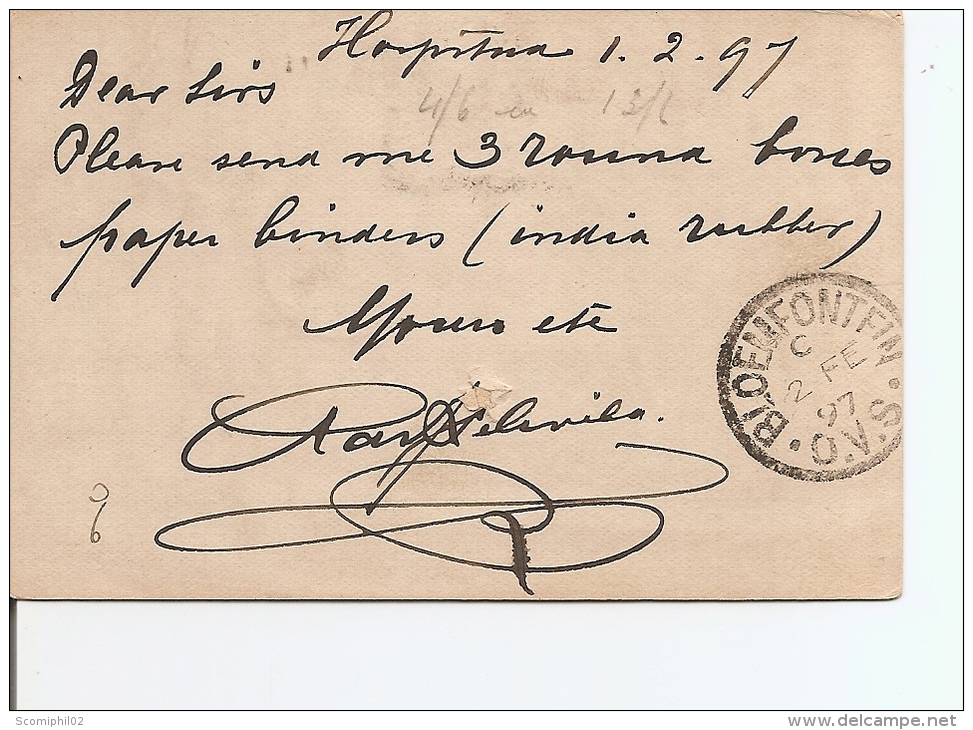 Hoopstad 1.2.97
Dear Sirs
4/6
Please send me 3 round boxes
paper binders (india rubber)
Yours etc
BLOEMFONTEIN
C
2 FE
97
O.V.S.
Scomiphil02
delcampe.net